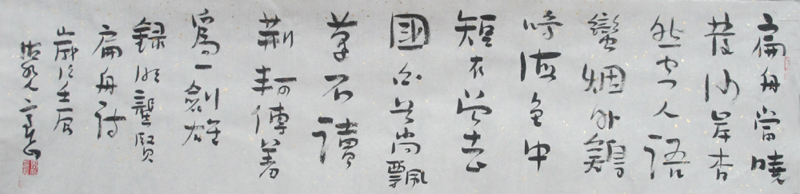 扁舟當曉
發沙岸杳
然空人語
蠻烟外鷄
海色中
短衣曾去
國白首尚飄
蓬不讀
荊軻傳羞
爲一劍雄
録明龔賢
扁舟詩
歲次壬辰